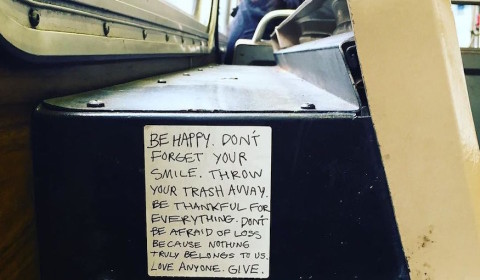 BE HAPPY. DON'T
FORGET YOUR
SMILE. THROW
YOUR TRASH AWAY.
BE THANKFUL FOR
EVERYTHING. DON'T
BE AFRAID OF LOSS
BECAUSE NOTHING
TRULY BELONGS TO US.
LOVE ANYONE. GIVE.